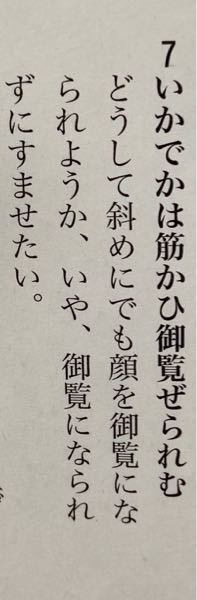 7いかでかは筋かひ御覧ぜられむ
どうして斜めにでも顔を御覧にな
られようか、いや、御覧になられ
ずにすませたい。